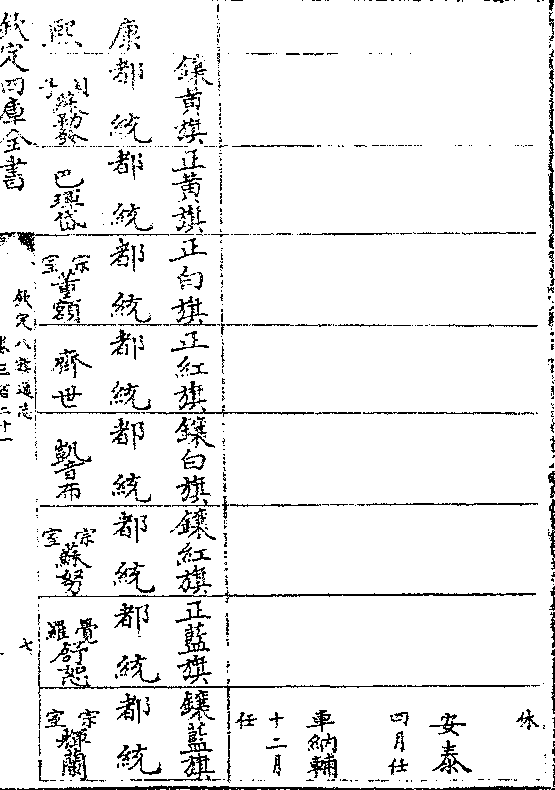 休
安泰
四月任
車納輔
十二月
任
鑲黃旗
正黃旗
正白旗
正紅旗
鑲白旗
鑲紅旗
正藍旗
鑲藍旗
康
都統
都統
都統
都統
都統
都統
都統
都統
熙
巴琿岱
宗室董額
齊世
凱音布
宗室蘇努
覺羅舒恕
宗室輝蘭
欽定四庫全書
欽定八旗通志
卷三百二十一
七